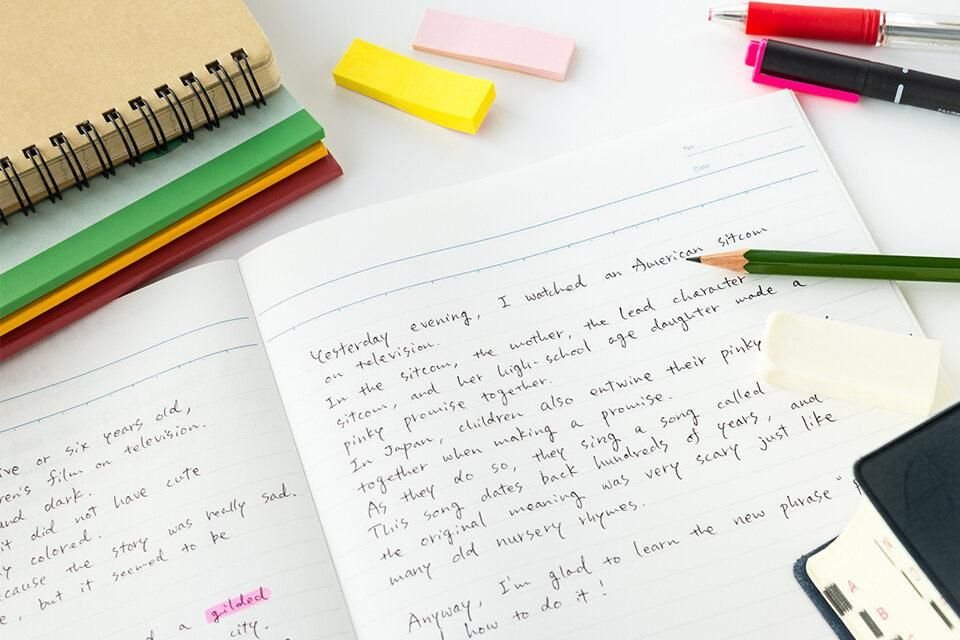 ive or six years old,
ren's film on television.
and dark.
it did not have cute
y colored.
cause the story was really sad.
e, but it seemed to be
d a gilded
city.
No.
Date
Yesterday evening, I watched an American sitcom
on television.
In the sitcom, the mother, the lead character
sitcom, and her high-school age daughter made a
pinky promise together.
In Japan, children also entwine their pinky
together when making a promise.
As they do so, they sing a song called
This song dates back hundreds of years, and
the original meaning was very scary just like
many old nursery rhymes.
Anyway, I'm glad to learn the new phrase "
how to do it!
A
B
N